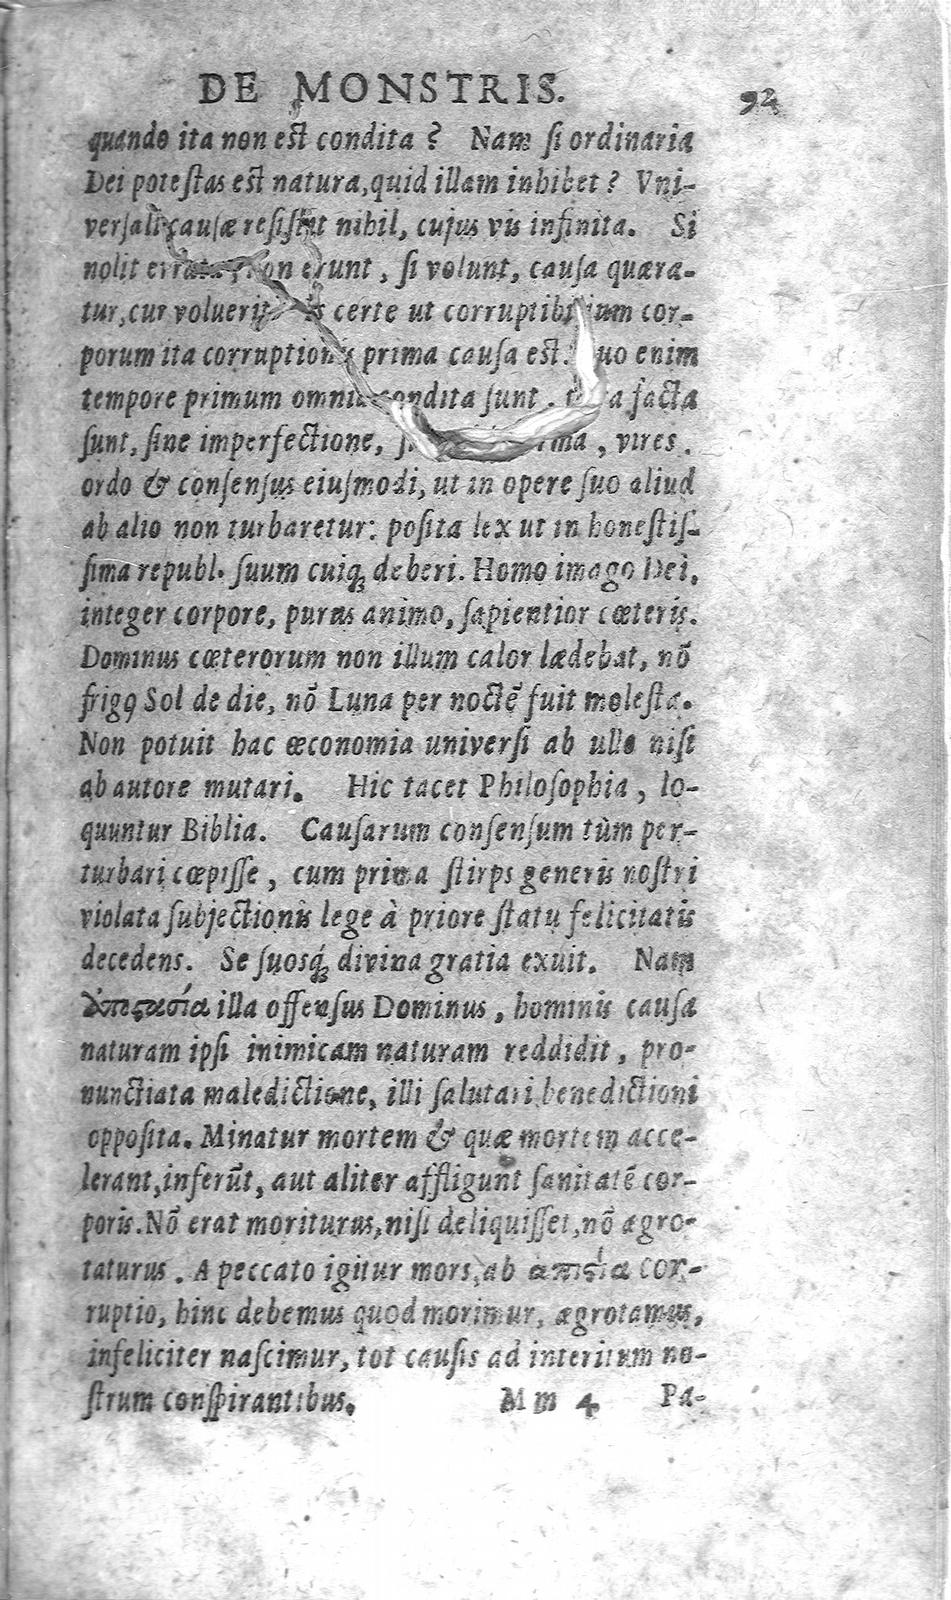 DE MONSTRIS. 92
quando ita non est condita ? Nam si ordinaria
Dei potestas est natura, quid illam inhibet ? Vni-
versali causæ resistit nihil, cujus vis infinita. Si
nolit errata non erunt , si volunt, causa quæra-
tur, cur voluerit certe ut corruptibilium cor-
porum ita corruptionis prima causa est. Quo enim
tempore primum omnia condita sunt . facta
sunt, sine imperfectione, , vires .
ordo & consensus eiusmodi, ut in opere suo aliud
ab alio non turbaretur: posita lex ut in honestis-
sima republ. suum cuiq; deberi. Homo imago Dei,
integer corpore, purus animo, sapientior cœteris.
Dominus cœterorum non illum calor lædebat, nō
frigꝰ Sol de die, nō Luna per noctē fuit molesta.
Non potuit hac œconomia universi ab ullo nisi
ab autore mutari. Hic tacet Philosophia , lo-
quuntur Biblia. Causarum consensum tùm per-
turbari cœpisse , cum prima stirps generis nostri
violata subjectionis lege à priore statu felicitatis
decedens. Se suosq́; divina gratia exuit. Nam
ἀποστασία illa offensus Dominus , hominis causa
naturam ipsi inimicam naturam reddidit , pro-
nunctiata maledictione, illi salutari benedictioni
opposita. Minatur mortem & quæ mortem acce-
lerant, inferūt, aut aliter affligunt sanitatē cor-
poris. Nō erat moriturus, nisi deliquisset, nō ægro-
taturus . A peccato igitur mors, ab ἀπιστία cor-
ruptio, hinc debemus quod morimur, ægrotamus,
infeliciter nascimur, tot causis ad interitum no-
strum conspirantibus. Mm 4 Pa-